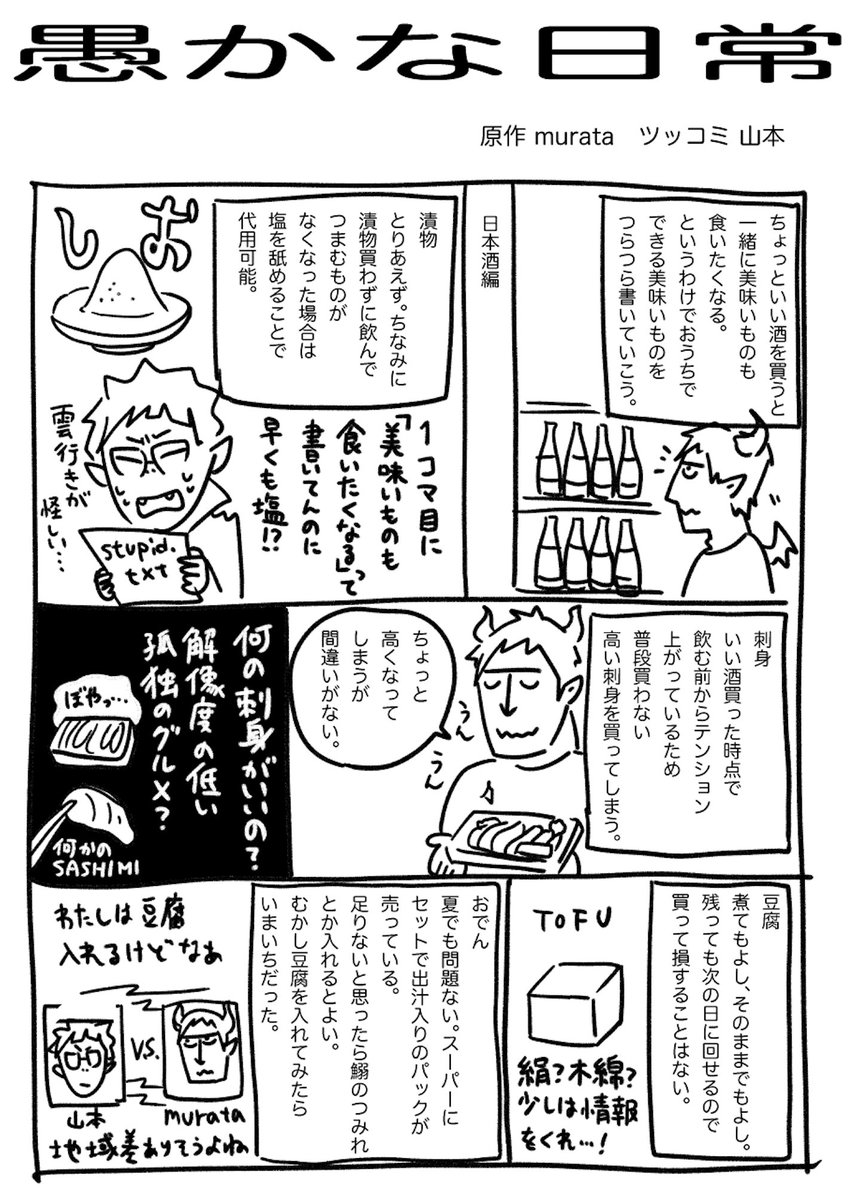 愚かな日常
原作 murata　ツッコミ 山本
ちょっといい酒を買うと
一緒に美味いものも
食いたくなる。
というわけでおうちで
できる美味いものを
つらつら書いていこう。
日本酒編
漬物
とりあえず。ちなみに
漬物買わずに飲んで
つまむものが
なくなった場合は
塩を舐めることで
代用可能。
おしお
1コマ目に
「美味いものも
食いたくなる」って
書いてんのに
早くも塩!?
雲行きが
怪しい…
stupid.
txt
刺身
いい酒買った時点で
飲む前からテンション
上がっているため
普段買わない
高い刺身を買ってしまう。
うん
うん
ちょっと
高くなって
しまうが
間違いがない。
何の刺身がいいの?
解像度の低い
孤独のグルメ?
ぼやっ…
何かの
SASHIMI
豆腐
煮てもよし、そのままでもよし。
残っても次の日に回せるので
買って損することはない。
TOFU
絹?木綿?
少しは情報
をくれ…!
おでん
夏でも問題ない。スーパーに
セットで出汁入りのパックが
売っている。
足りないと思ったら鰯のつみれ
とか入れるとよい。
むかし豆腐を入れてみたら
いまいちだった。
わたしは豆腐
入れるけどなあ
VS.
山本
murata
地域差ありそうよね